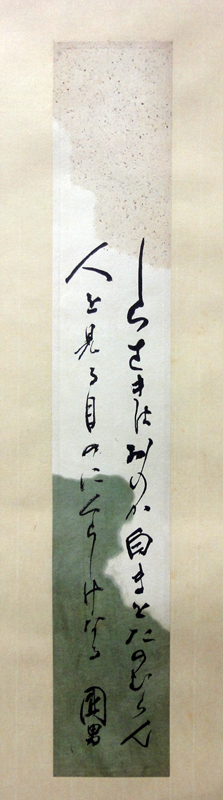 しらさきはおのか白きをたのむらん
人を見る目のにくらしけなる
國男